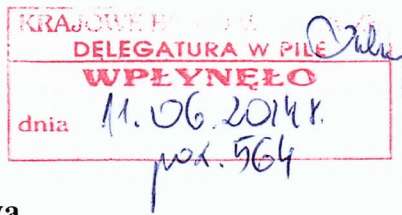 KRAJOWE
DELEGATURA W PILE
WPŁYNĘŁO
dnia 11.06.2014 r.
poz. 564